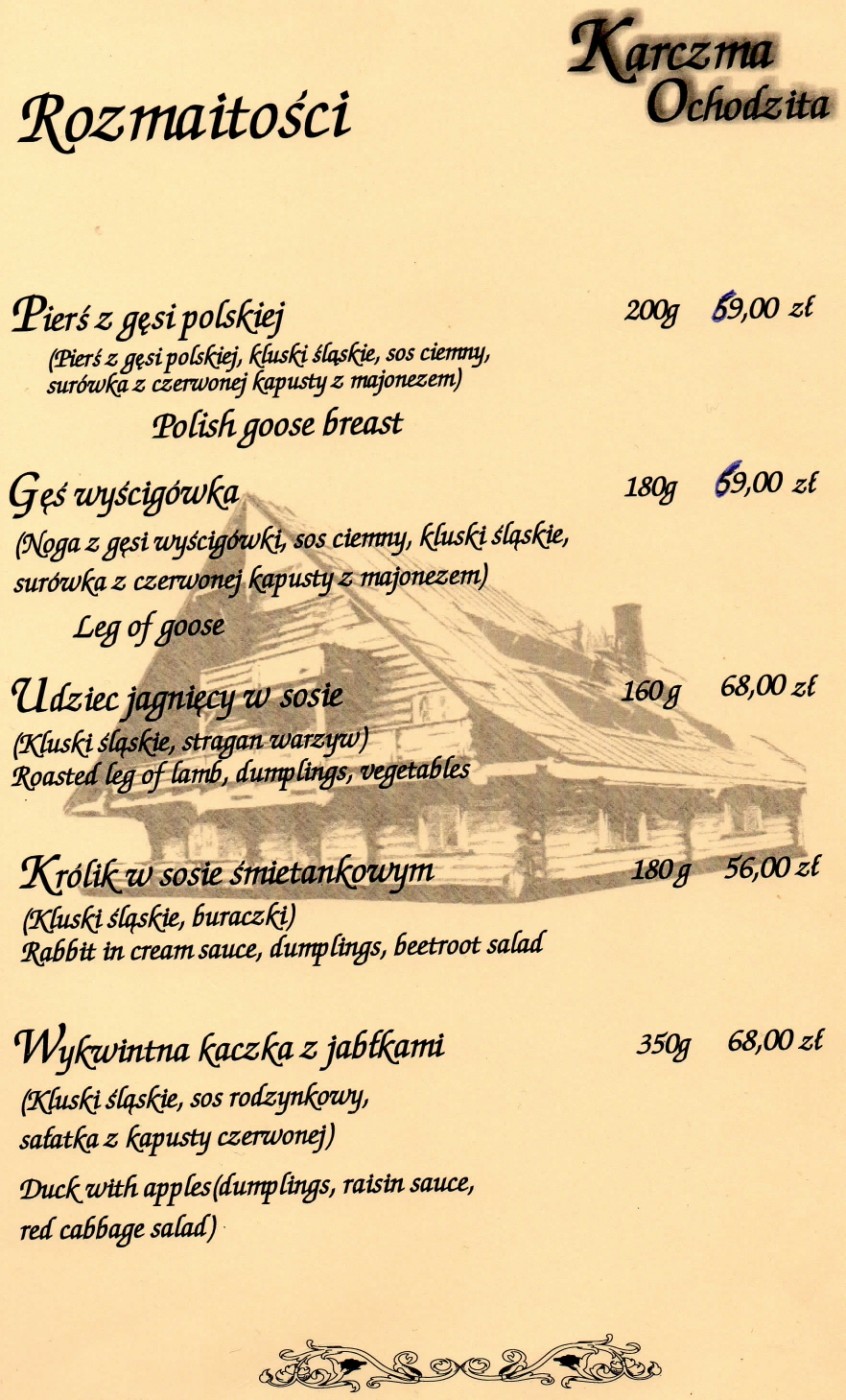 Karczma
Ochodzita
Rozmaitości
Pierś z gęsi polskiej 200g 69,00 zł
(Pierś z gęsi polskiej, kluski śląskie, sos ciemny,
surówka z czerwonej kapusty z majonezem)
Polish goose breast
Gęś wyścigówka 180g 69,00 zł
(Noga z gęsi wyścigówki, sos ciemny, kluski śląskie,
surówka z czerwonej kapusty z majonezem)
Leg of goose
Udziec jagnięcy w sosie 160 g 68,00 zł
(Kluski śląskie, stragan warzyw)
Roasted leg of lamb, dumplings, vegetables
Królik w sosie śmietankowym 180 g 56,00 zł
(Kluski śląskie, buraczki)
Rabbit in cream sauce, dumplings, beetroot salad
Wykwintna kaczka z jabłkami 350g 68,00 zł
(Kluski śląskie, sos rodzynkowy,
sałatka z kapusty czerwonej)
Duck with apples(dumplings, raisin sauce,
red cabbage salad)